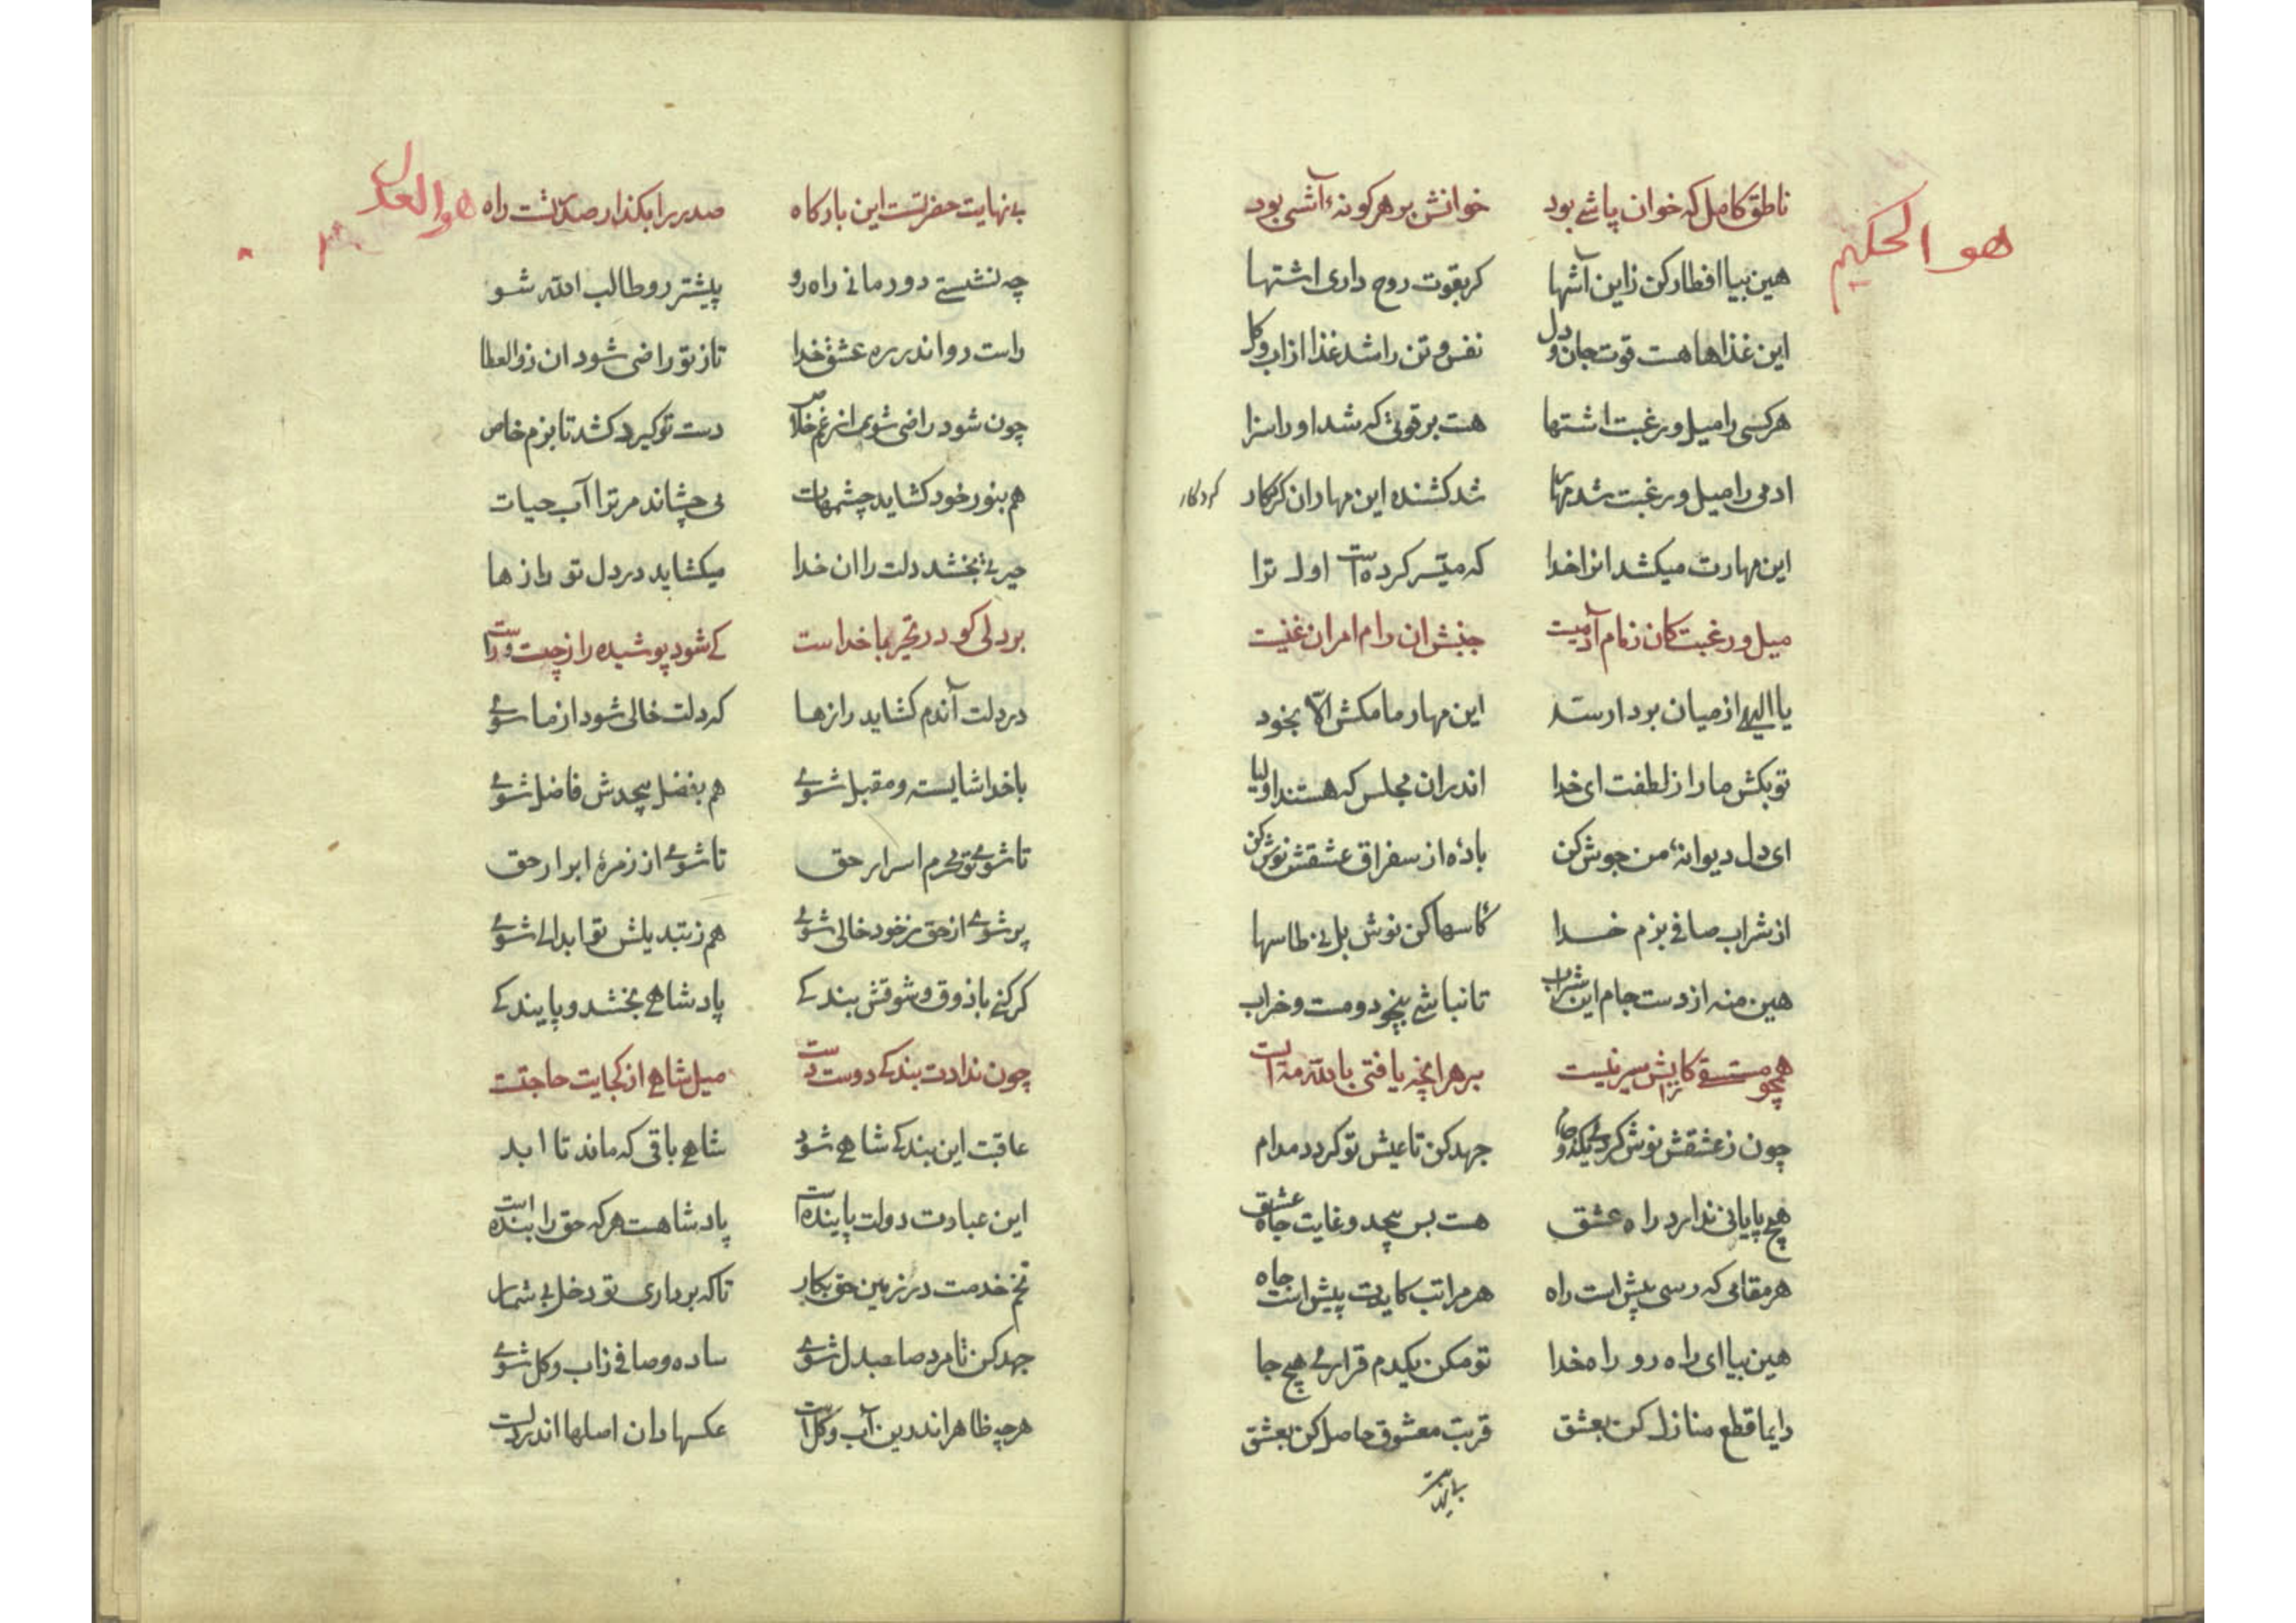 هو الحكيم
ناطق کامل که خوان پاشی بود خوانش بر هر کونهٔ آشی بود
هین بیا افطار کن زاین آشها کر بقوت روح داری اشتها
این غذاها هست قوت جان و دل نفس و تن را شد غذا از اب و کل
هر کسی را میل و رغبت اشتها هست بر قوتی که شد او را سزا
ادمی را میل و رغبت شد مهار شد کشنده این مهار ان کردکار
کردکار
این مهارت میکشد انرا خدا که میسر کرده است اول ترا
میل و رغبت کان زمام آدمیست جنبش ان رام امر ان غنیست
یا الهی از میان بردار سد این مهار ما مکش الا بخود
تو بکش ما را ز لطفت ای خدا اندران مجلس که هستند اولیا
ای دل دیوانهٔ من جوش کن باده از سغراق عشقش نوش کن
از شراب صافی بزم خدا کاسها کن نوش بل بی طاسها
هین منه از دست جام این شراب تا نباشی بیخود و مست و خراب
همچو مستسقی کز ابش سیر نیست بر هر انچه یافتی بالله مه ایست
چون ز عشقش نوش کردی یکدو جام جهد کن تا عیش تو کردد مدام
هیچ پایانی ندارد راه عشق هست بس بیحد و غایت جاه عشق
هر مقامی که رسی پیش است راه هر مراتب کایدت پیش است جاه
هین بیا ای راه رو راه خدا تو مکن یکدم قراری هیچ جا
دایما قطع منازل کن بعشق قربت معشوق حاصل کن بعشق
بی نهایت
هو العدل
بی نهایت حضرتست این بارکاه صدر را بکذار صدر تست راه
چه نشستی دور مانی راه رو پیشتر رو طالب الله شو
راست رو اندر ره عشق خدا تا ز تو راضی شود ان ذو العطا
چون شود راضی شوی از غم خلاص دست تو کیرد کشد تا بزم خاص
هم بنور خود کشاید چشمهات می چشاند مر ترا آب حیات
حیرتی بخشد دلت را ان خدا میکشاید در دل تو راز ها
بر دلی کو در تحیر با خداست کی شود پوشیده راز چپ و راست
در دلت آندم کشاید رازها که دلت خالی شود از ما سوی
با خدا شایسته و مقبل شوی هم بفضل بیحدش فاضل شوی
تا شوی تو محرم اسرار حق تا شوی از زمرهٔ ابرار حق
پر شوی از حق ز خود خالی شوی هم ز تبدیلش تو ابدالی شوی
کر کنی با ذوق و شوقش بندکی پادشاهی بخشد و پایندکی
چون ندادت بندکی دوست دست میل شاهی از کجایت حاجتست
عاقبت این بندکی شاهی شود شاهی باقی که ماند تا ابد
این عبادت دولت پاینده است پادشاهست هر که حق را بنده است
تخم خدمت در زمین حق بکار تا که برداری تو دخل بی شمار
جهد کن تا مرد صاحبدل شوی ساده و صافی ز اب و کل شوی
هر چه ظاهر اندرین آب و کل است عکسها دان اصلها اندر دلست